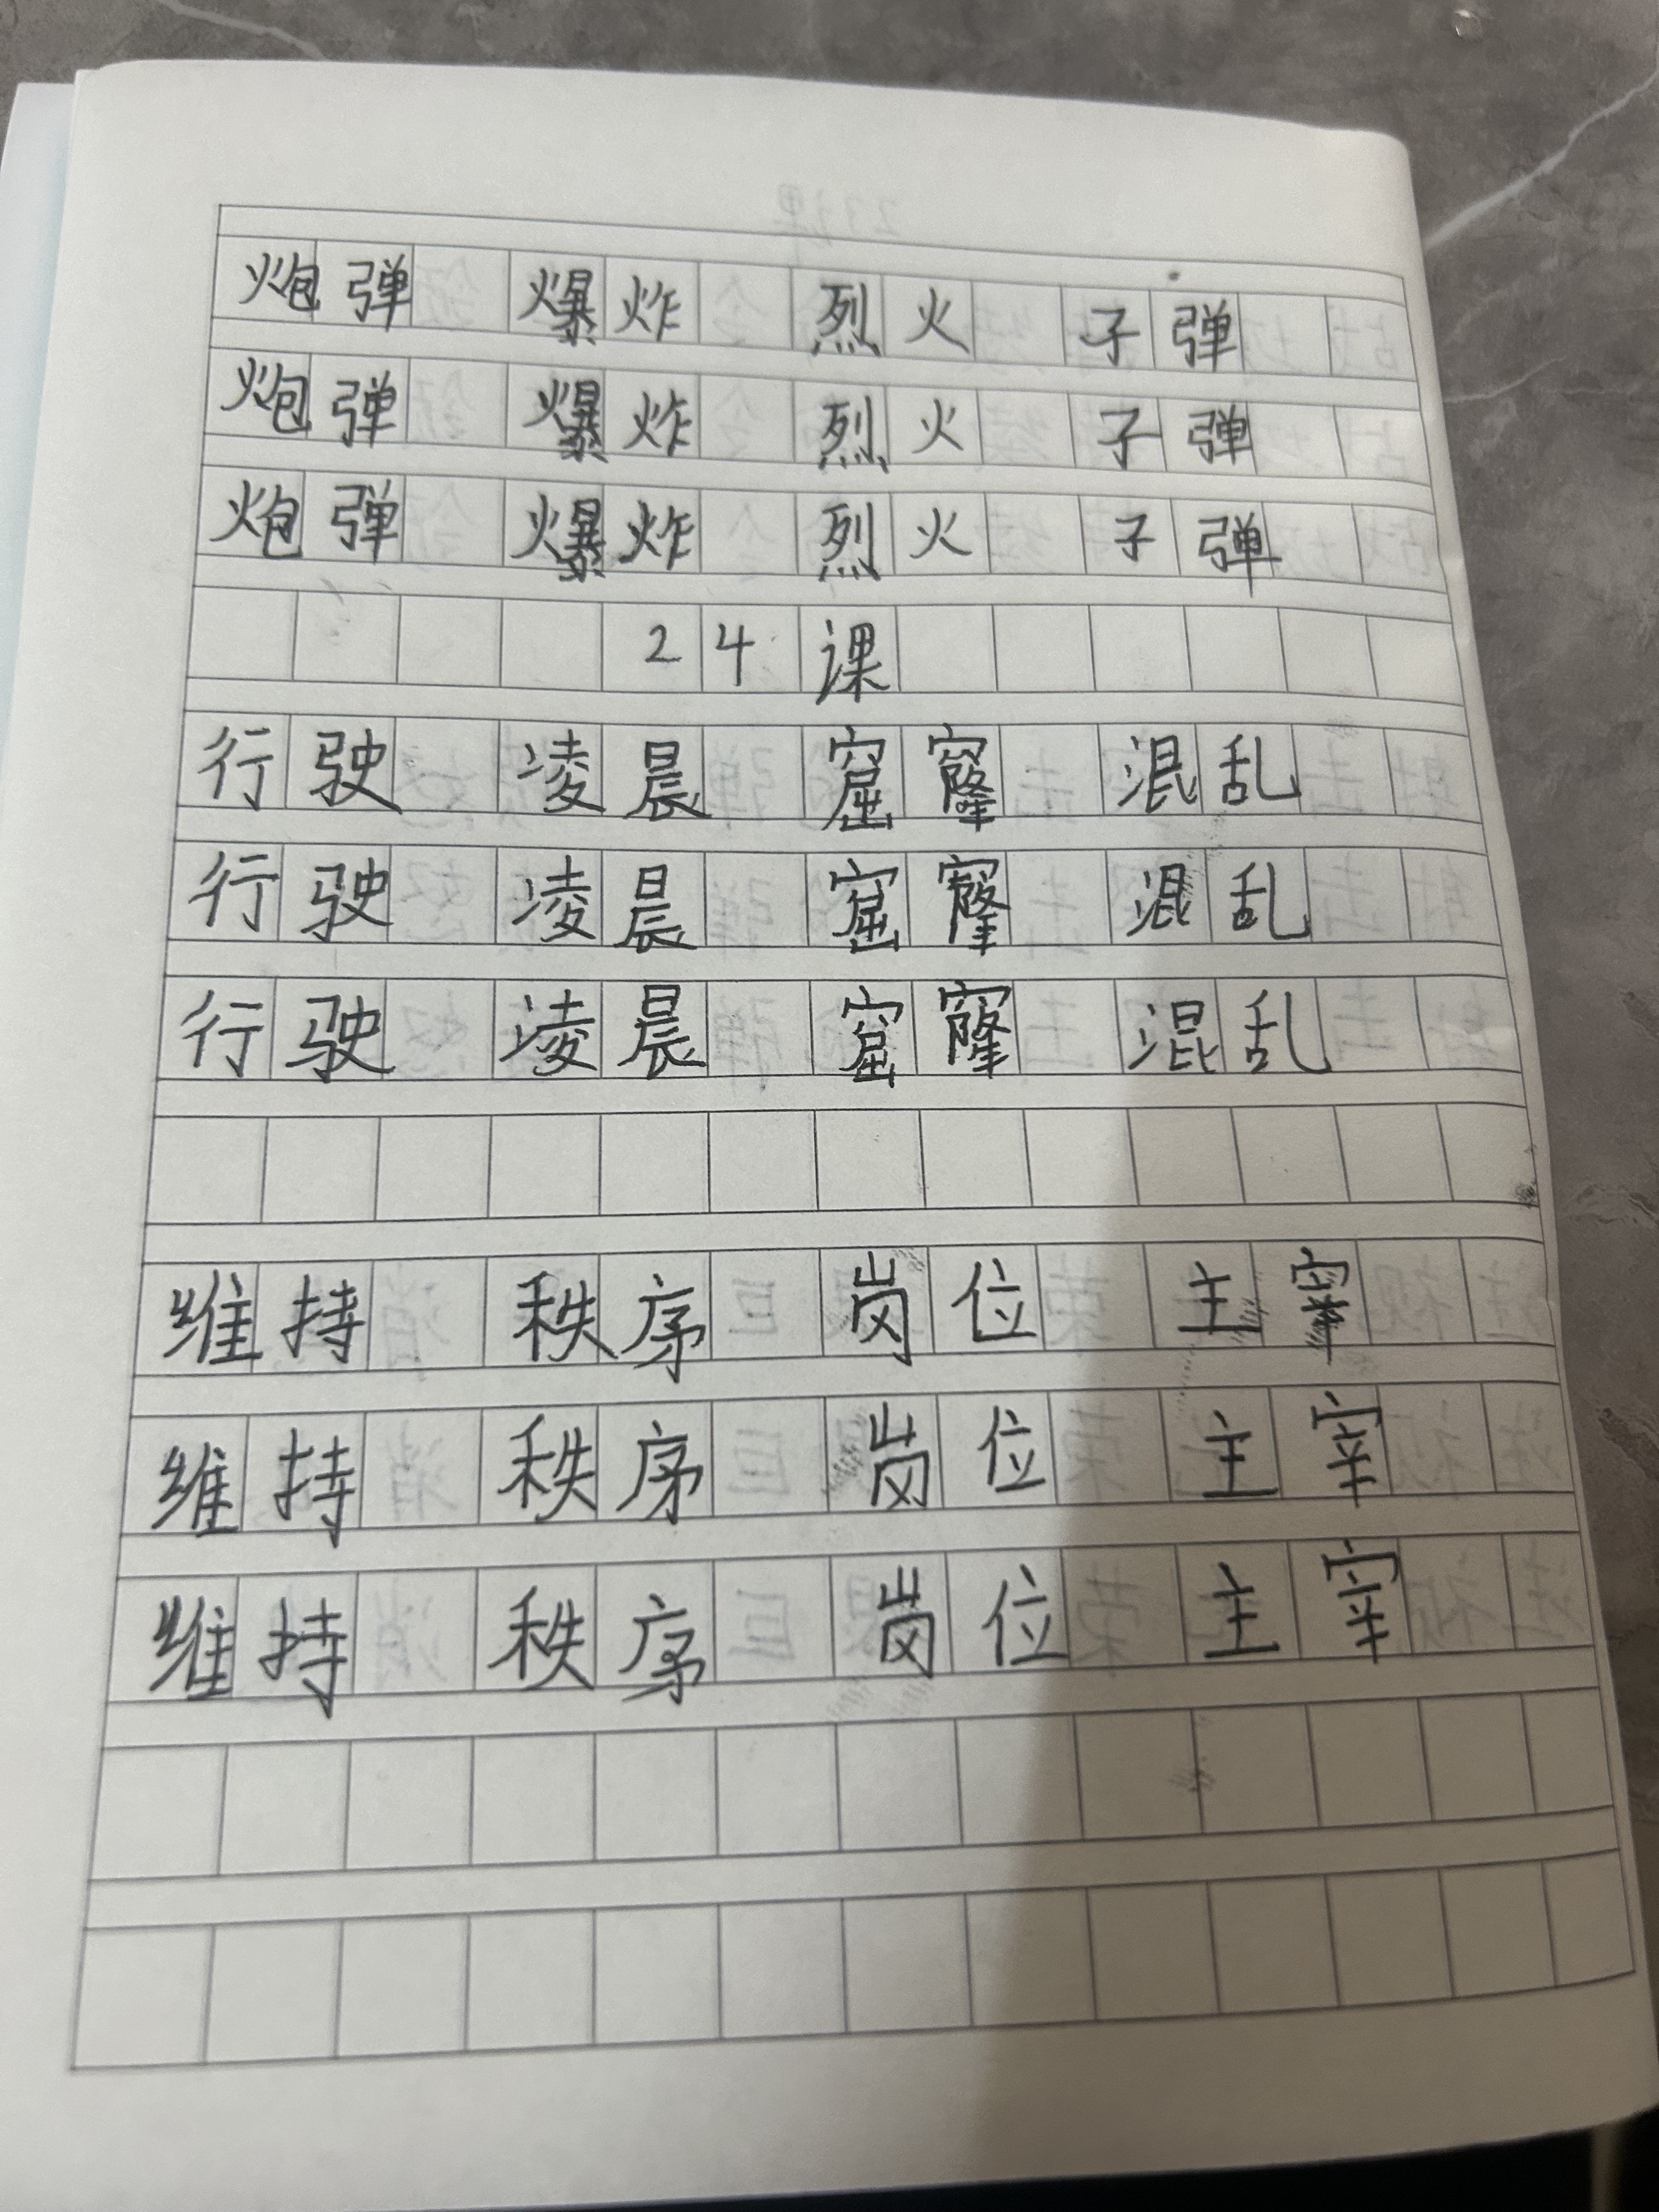 炮弹 爆炸 烈火 子弹
炮弹 爆炸 烈火 子弹
炮弹 爆炸 烈火 子弹
24课
行驶 凌晨 窟窿 混乱
行驶 凌晨 窟窿 混乱
行驶 凌晨 窟窿 混乱
维持 秩序 岗位 主宰
维持 秩序 岗位 主宰
维持 秩序 岗位 主宰